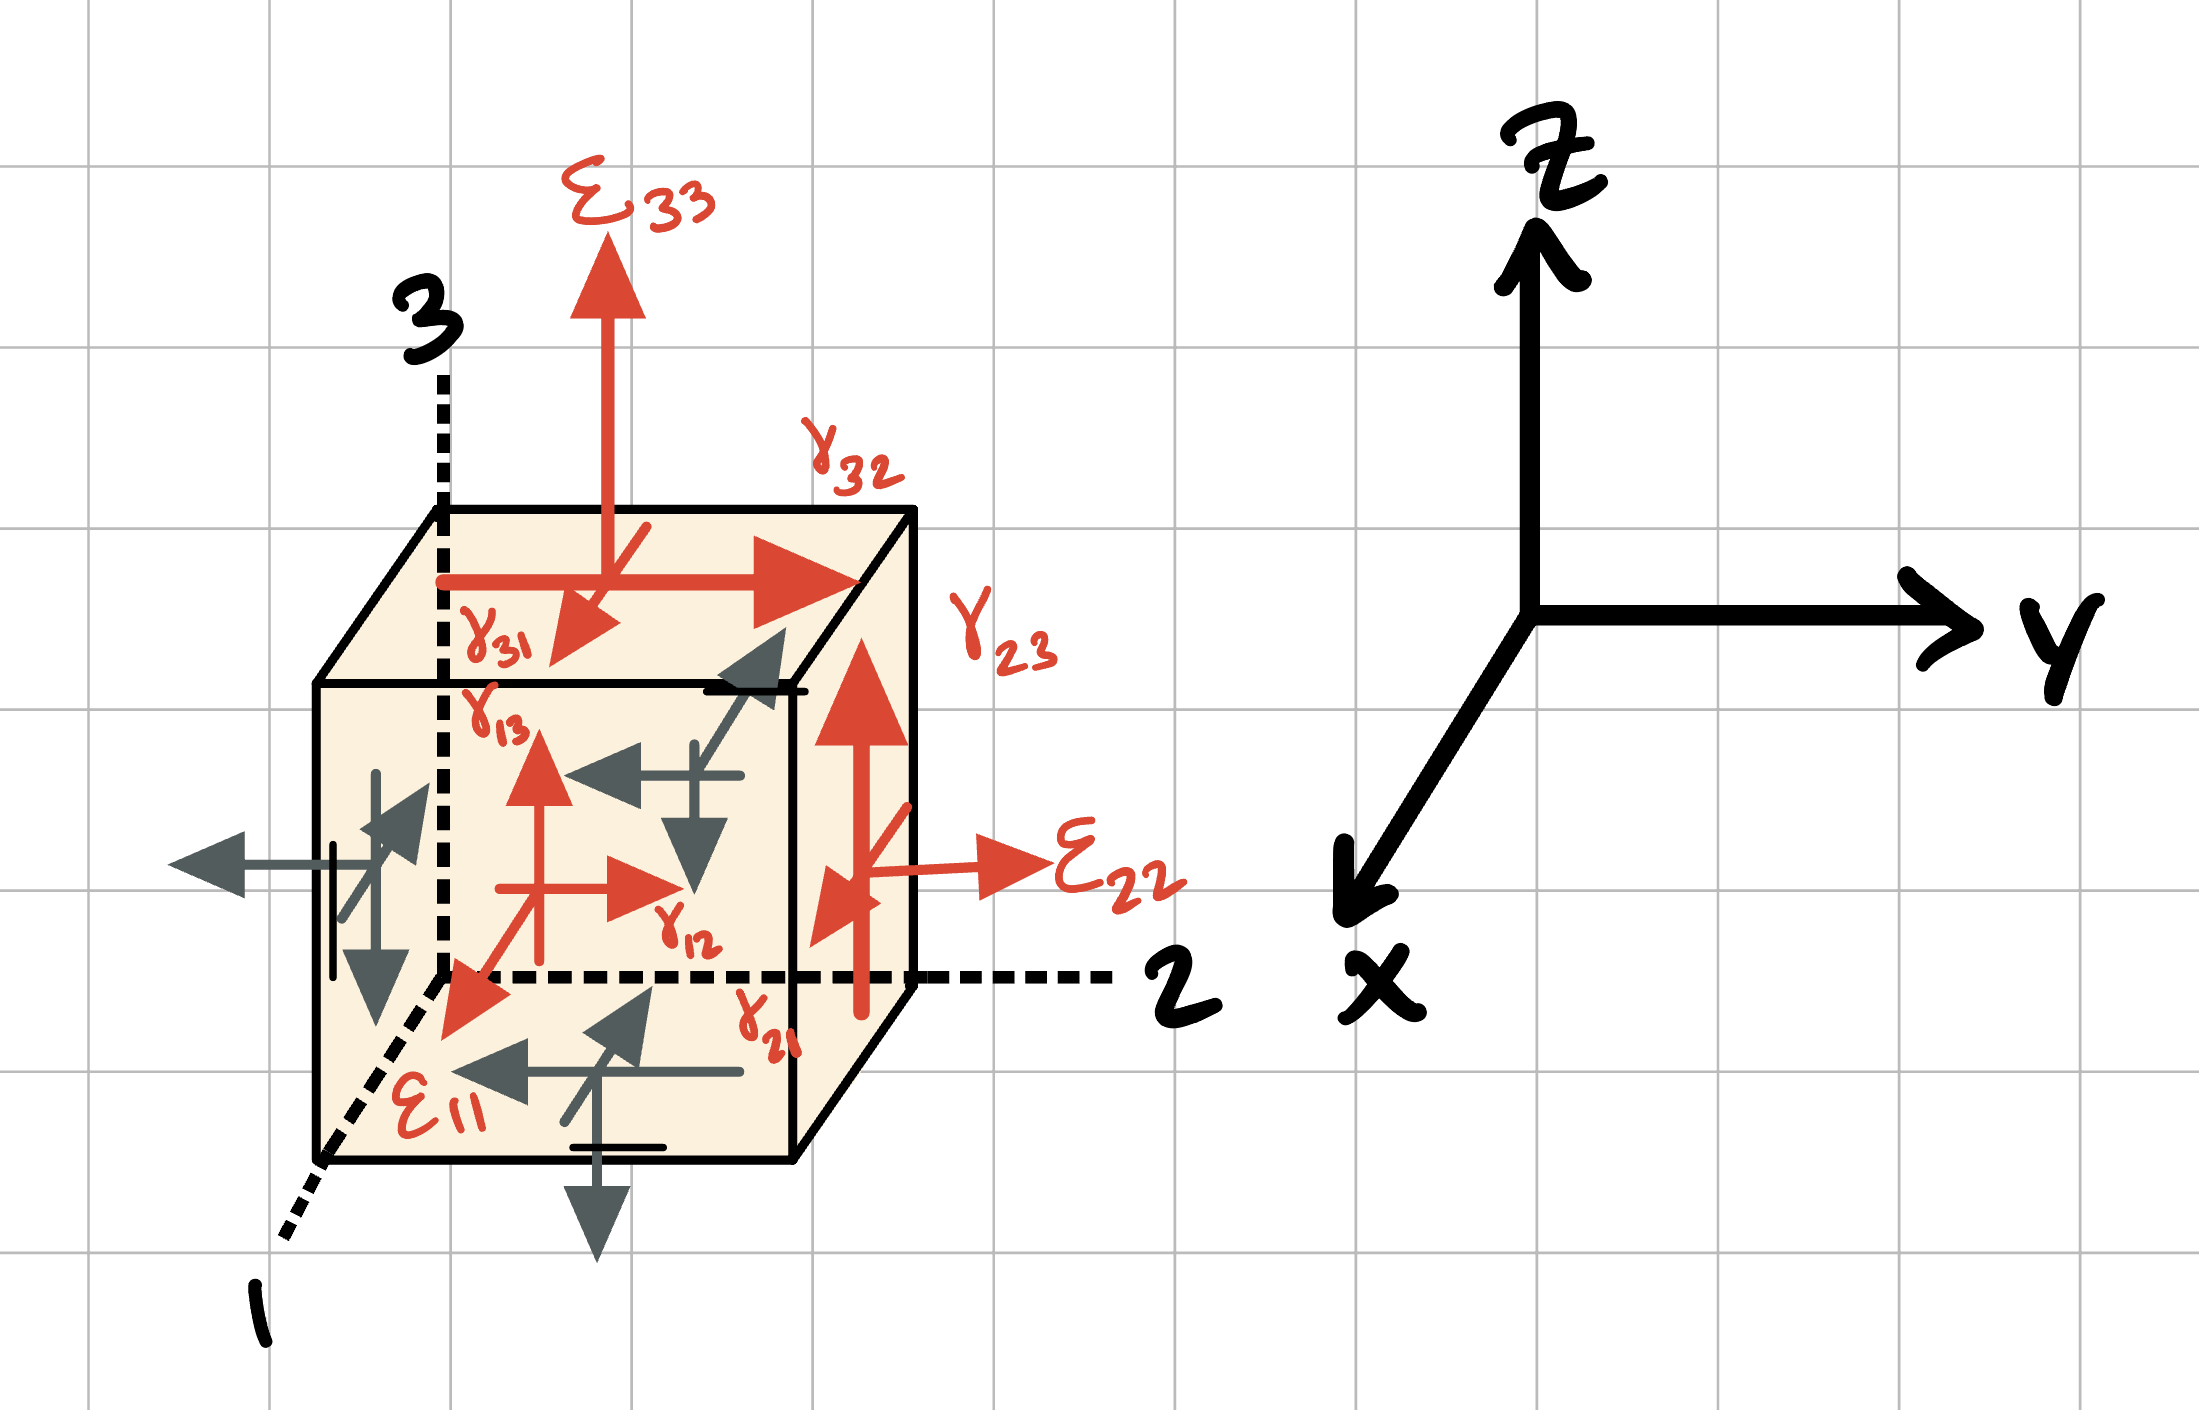 Z
ε33
3
γ32
γ31
γ23
γ13
y
ε22
γ12
2
x
γ21
ε11
1